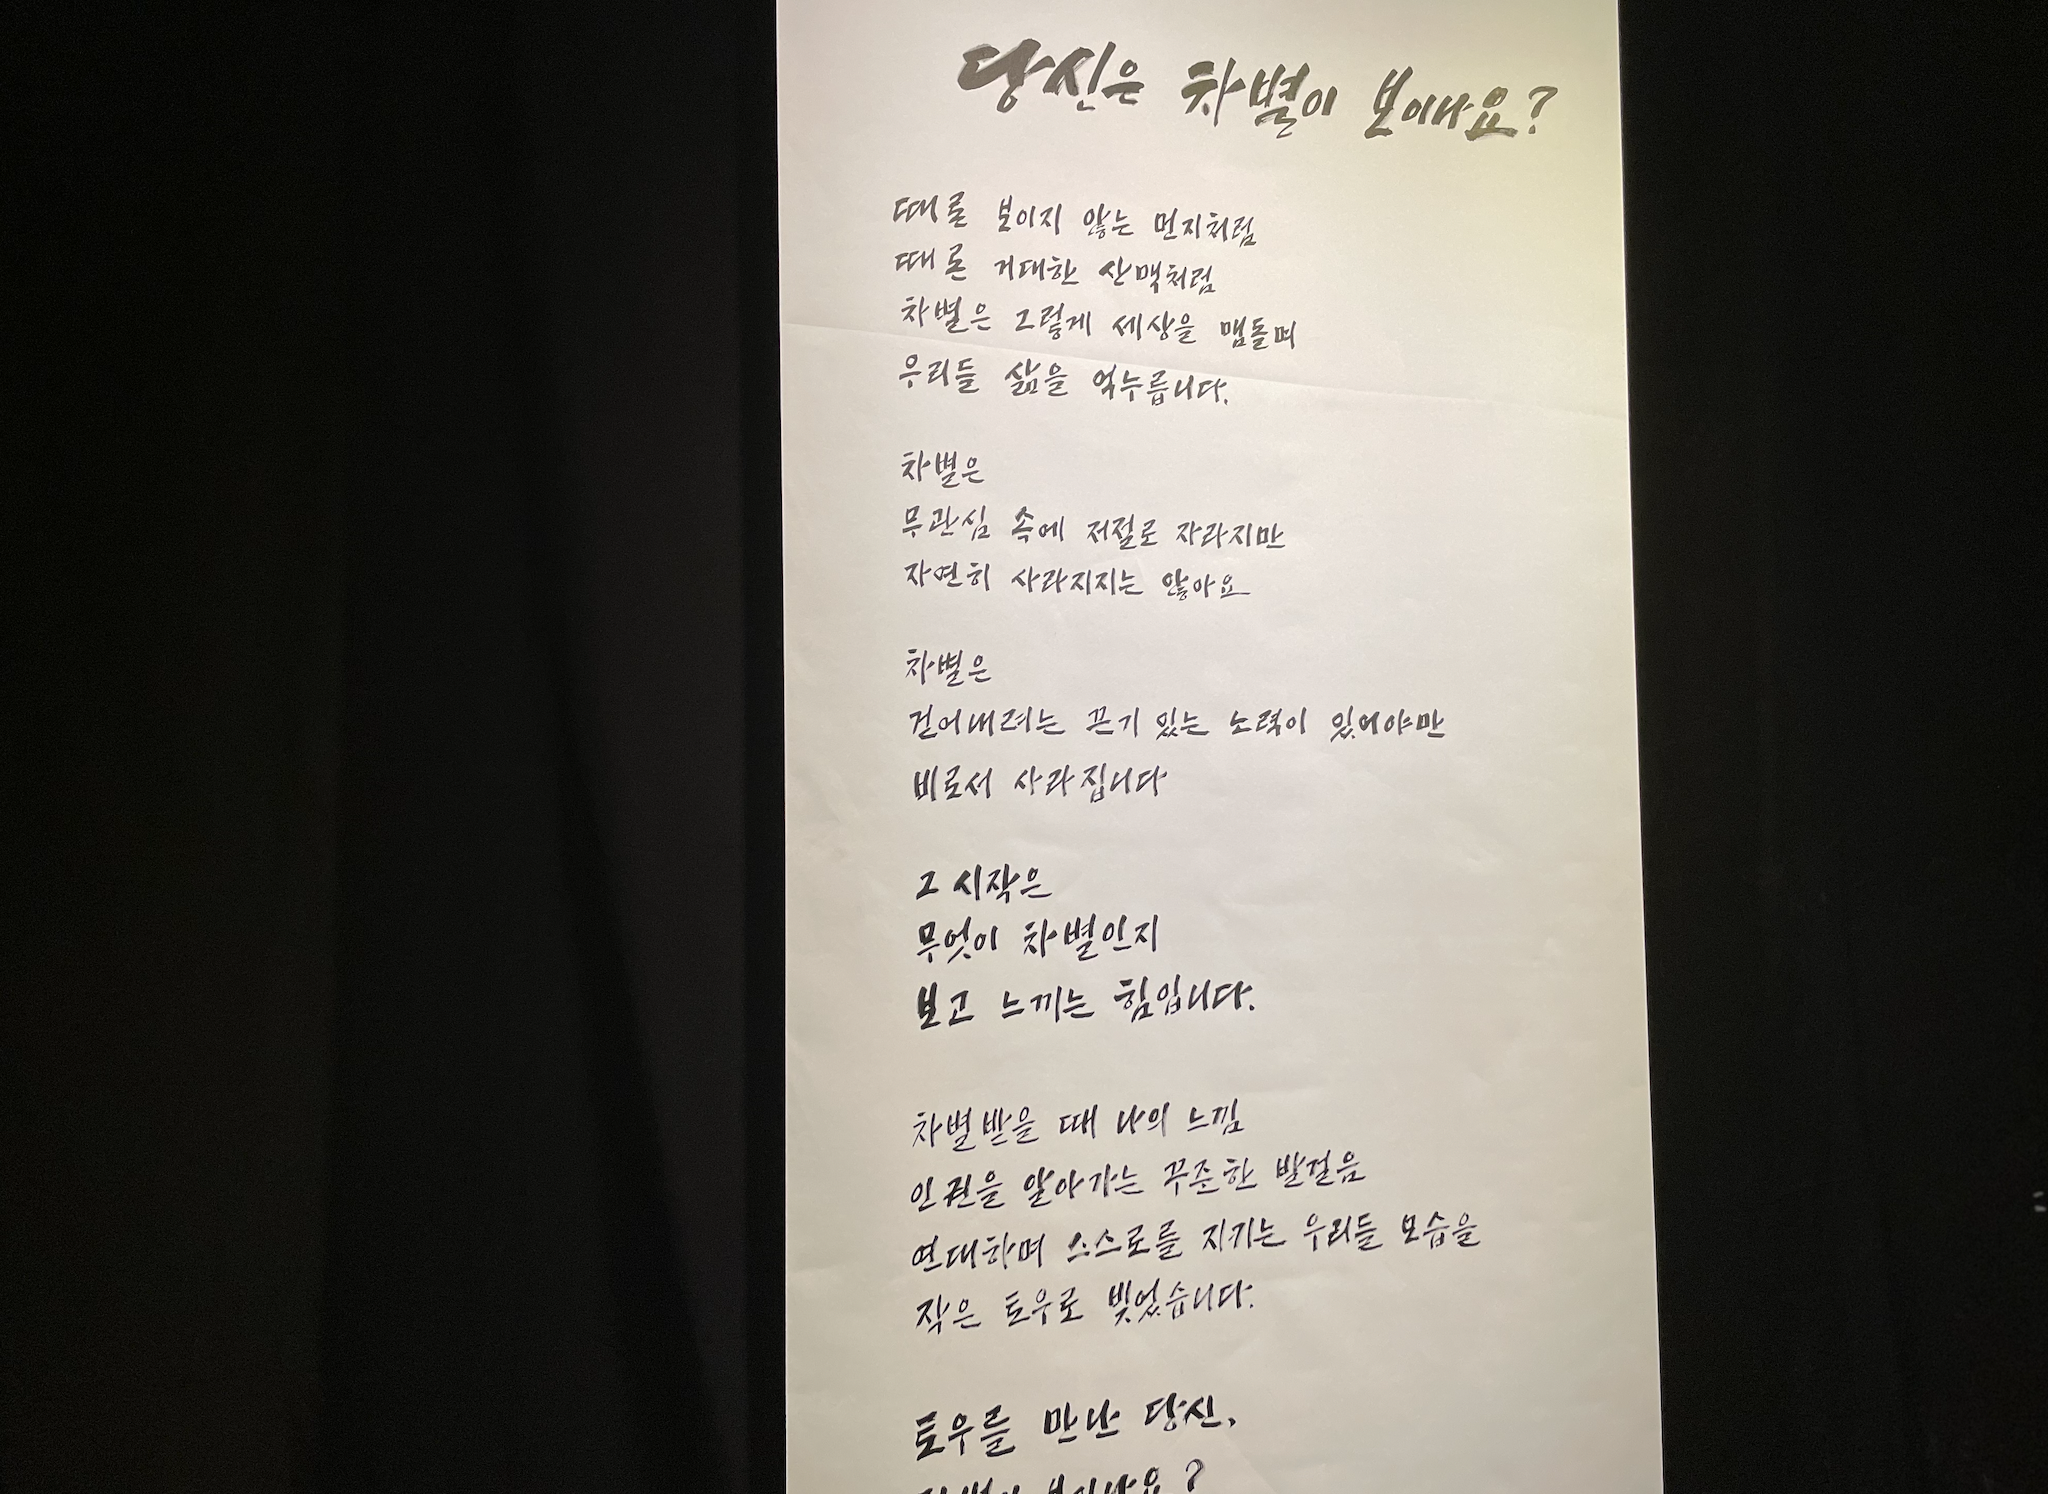 당신은 차별이 보이나요?
때론 보이지 않는 먼지처럼
때론 거대한 산맥처럼
차별은 그렇게 세상을 맴돌며
우리들 삶을 억누릅니다.
차별은
무관심 속에 저절로 자라지만
자연히 사라지지는 않아요
차별은
걷어내려는 끈기 있는 노력이 있어야만
비로서 사라집니다
그 시작은
무엇이 차별인지
보고 느끼는 힘입니다.
차별받을 때 나의 느낌
인권을 알아가는 꾸준한 발걸음
연대하며 스스로를 지키는 우리들 모습을
작은 토우로 빚었습니다.
토우를 만난 당신,
차별이 보이나요?